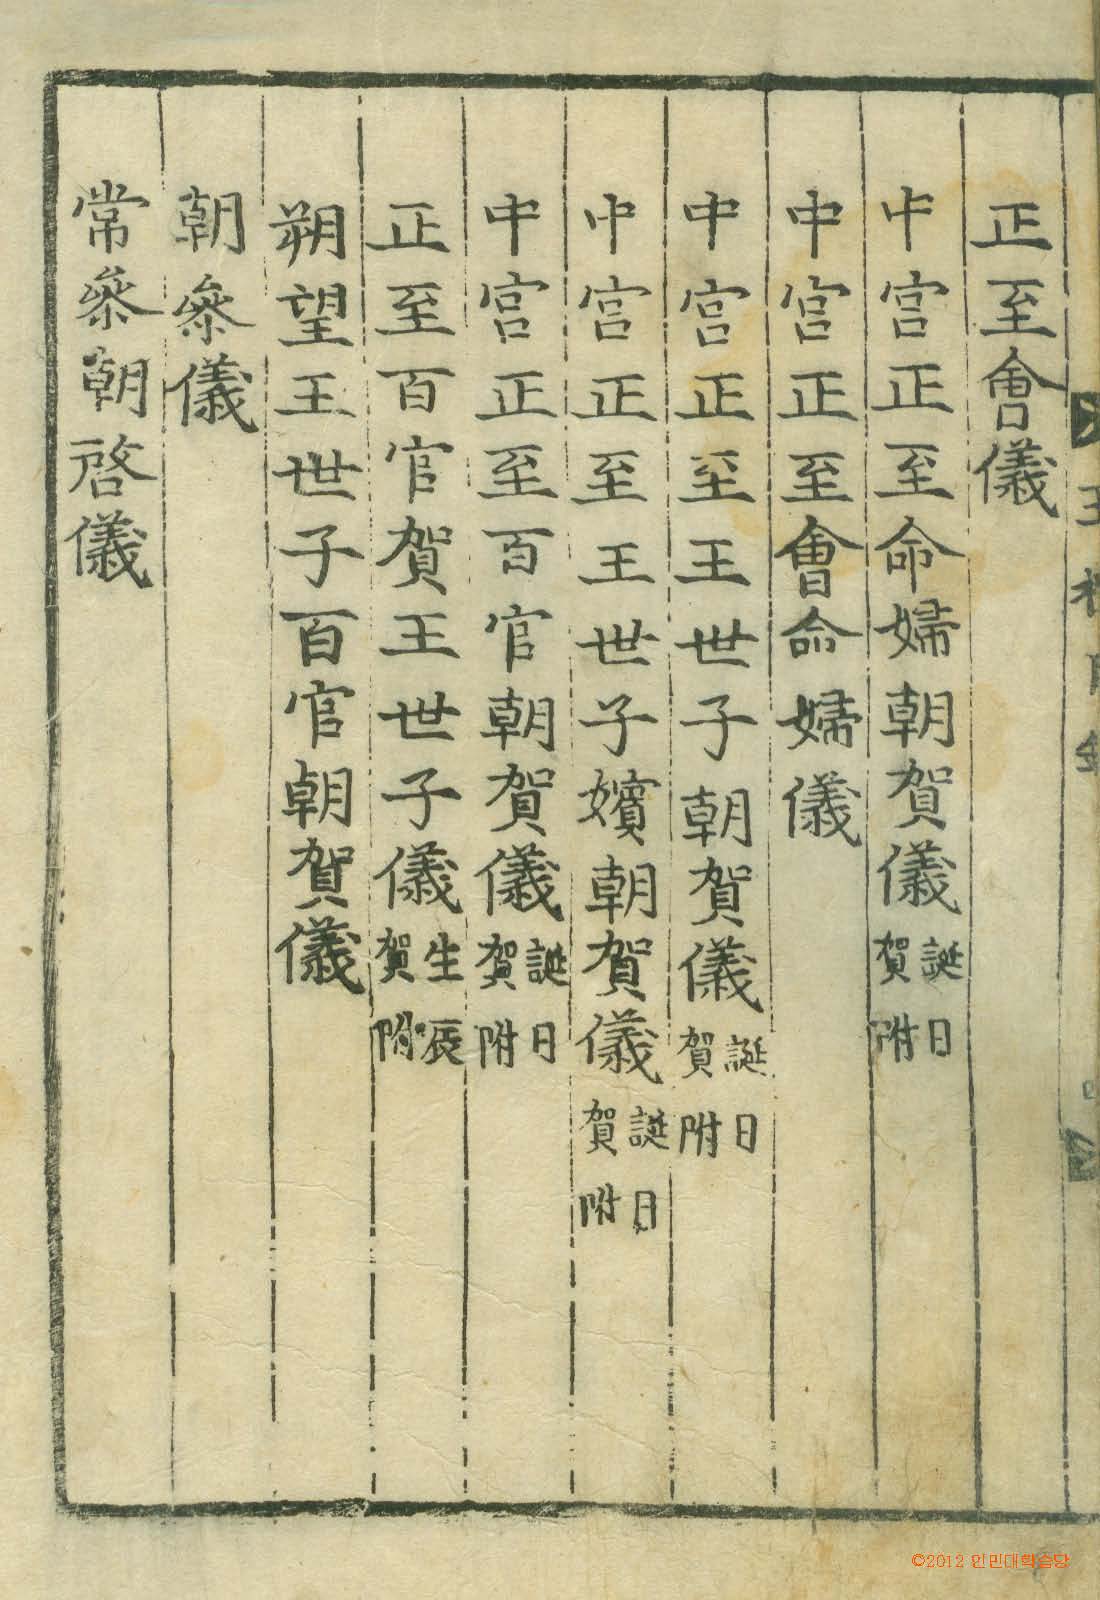 正至會儀
中宮正至命婦朝賀儀誕日賀附
中宮正至會命婦儀
中宮正至王世子朝賀儀誕日賀附
中宮正至王世子嬪朝賀儀誕日賀附
中宮正至百官朝賀儀誕日賀附
正至百官賀王世子儀生辰賀附
朔望王世子百官朝賀儀
朝參儀
常參朝啓儀
©2012 인민대학습당